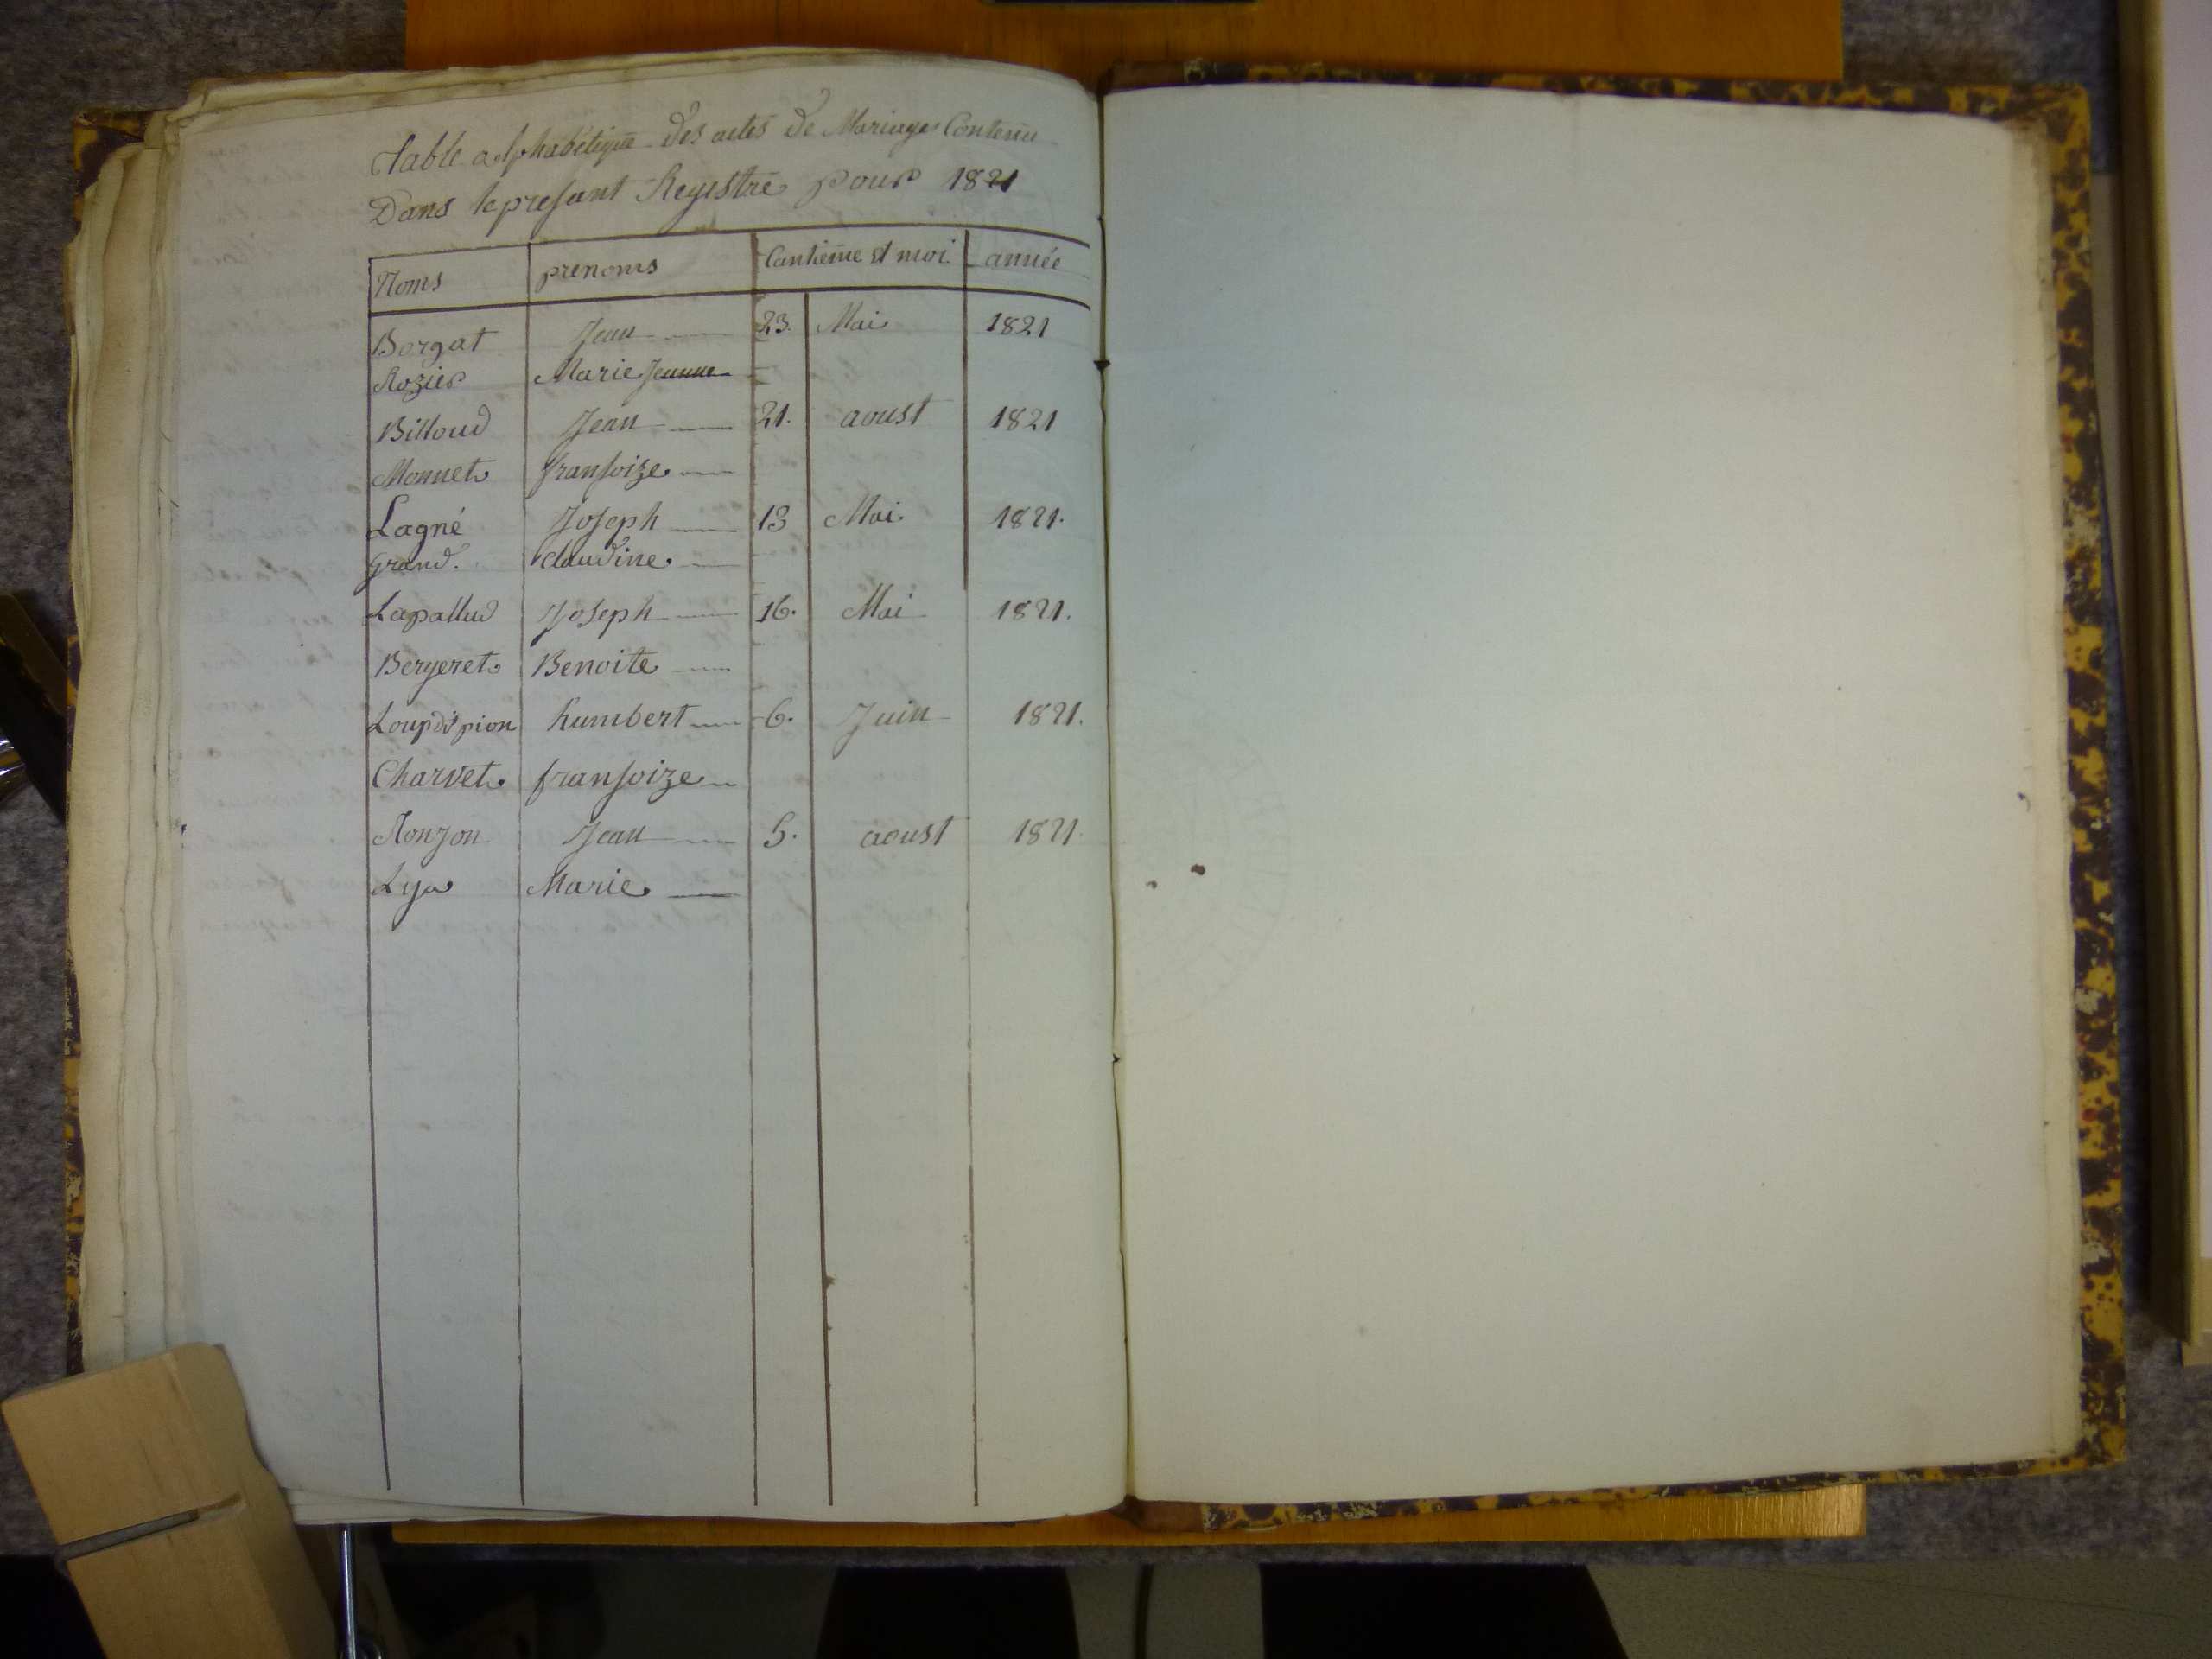 Table alphabétique des actes de Mariages Contenu
Dans le presant Registre pour 1821
Noms prenoms Cantieme et moi année
Borgat Jean 23. Mai 1821
Rozier Marie Jeanne
Billoud Jean 21. aoust 1821
Monnet fransoize
Lagné Joseph 13 Mai 1821.
grand. Claudine
Lapallud Joseph 16. Mai 1821.
Bergeret Benoite
Loup dit pion humbert 6. Juin 1821.
Charvet fransoize
Ronjon Jean 5. aoust 1821
Lya Marie